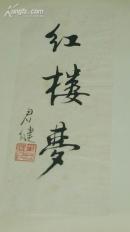 红楼夢
君健